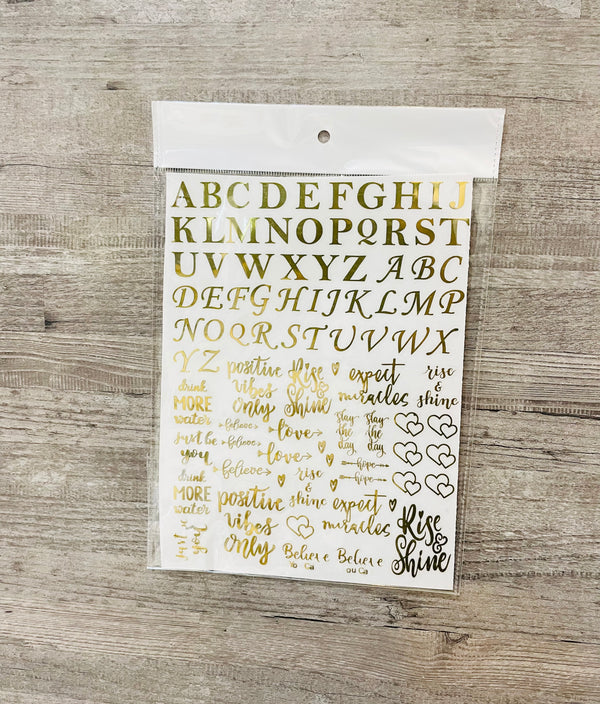 ABCDEFGHIJ
KLMNOPQRST
UVWXYZ ABC
DEFGHIJKLMP
NOQRSTUVWX
YZ
positive
vibes
only
Rise
&
Shine
expect
miracles
rise
&
shine
drink
MORE
water
believe
believe
love
slay
the
day
slay
the
day
just be
you
believe
love
hope
hope
drink
MORE
water
rise
&
shine
positive
vibes
only
expect
miracles
Rise
&
Shine
just be
you
Believe
Yo Ca
Believe
ou Ca